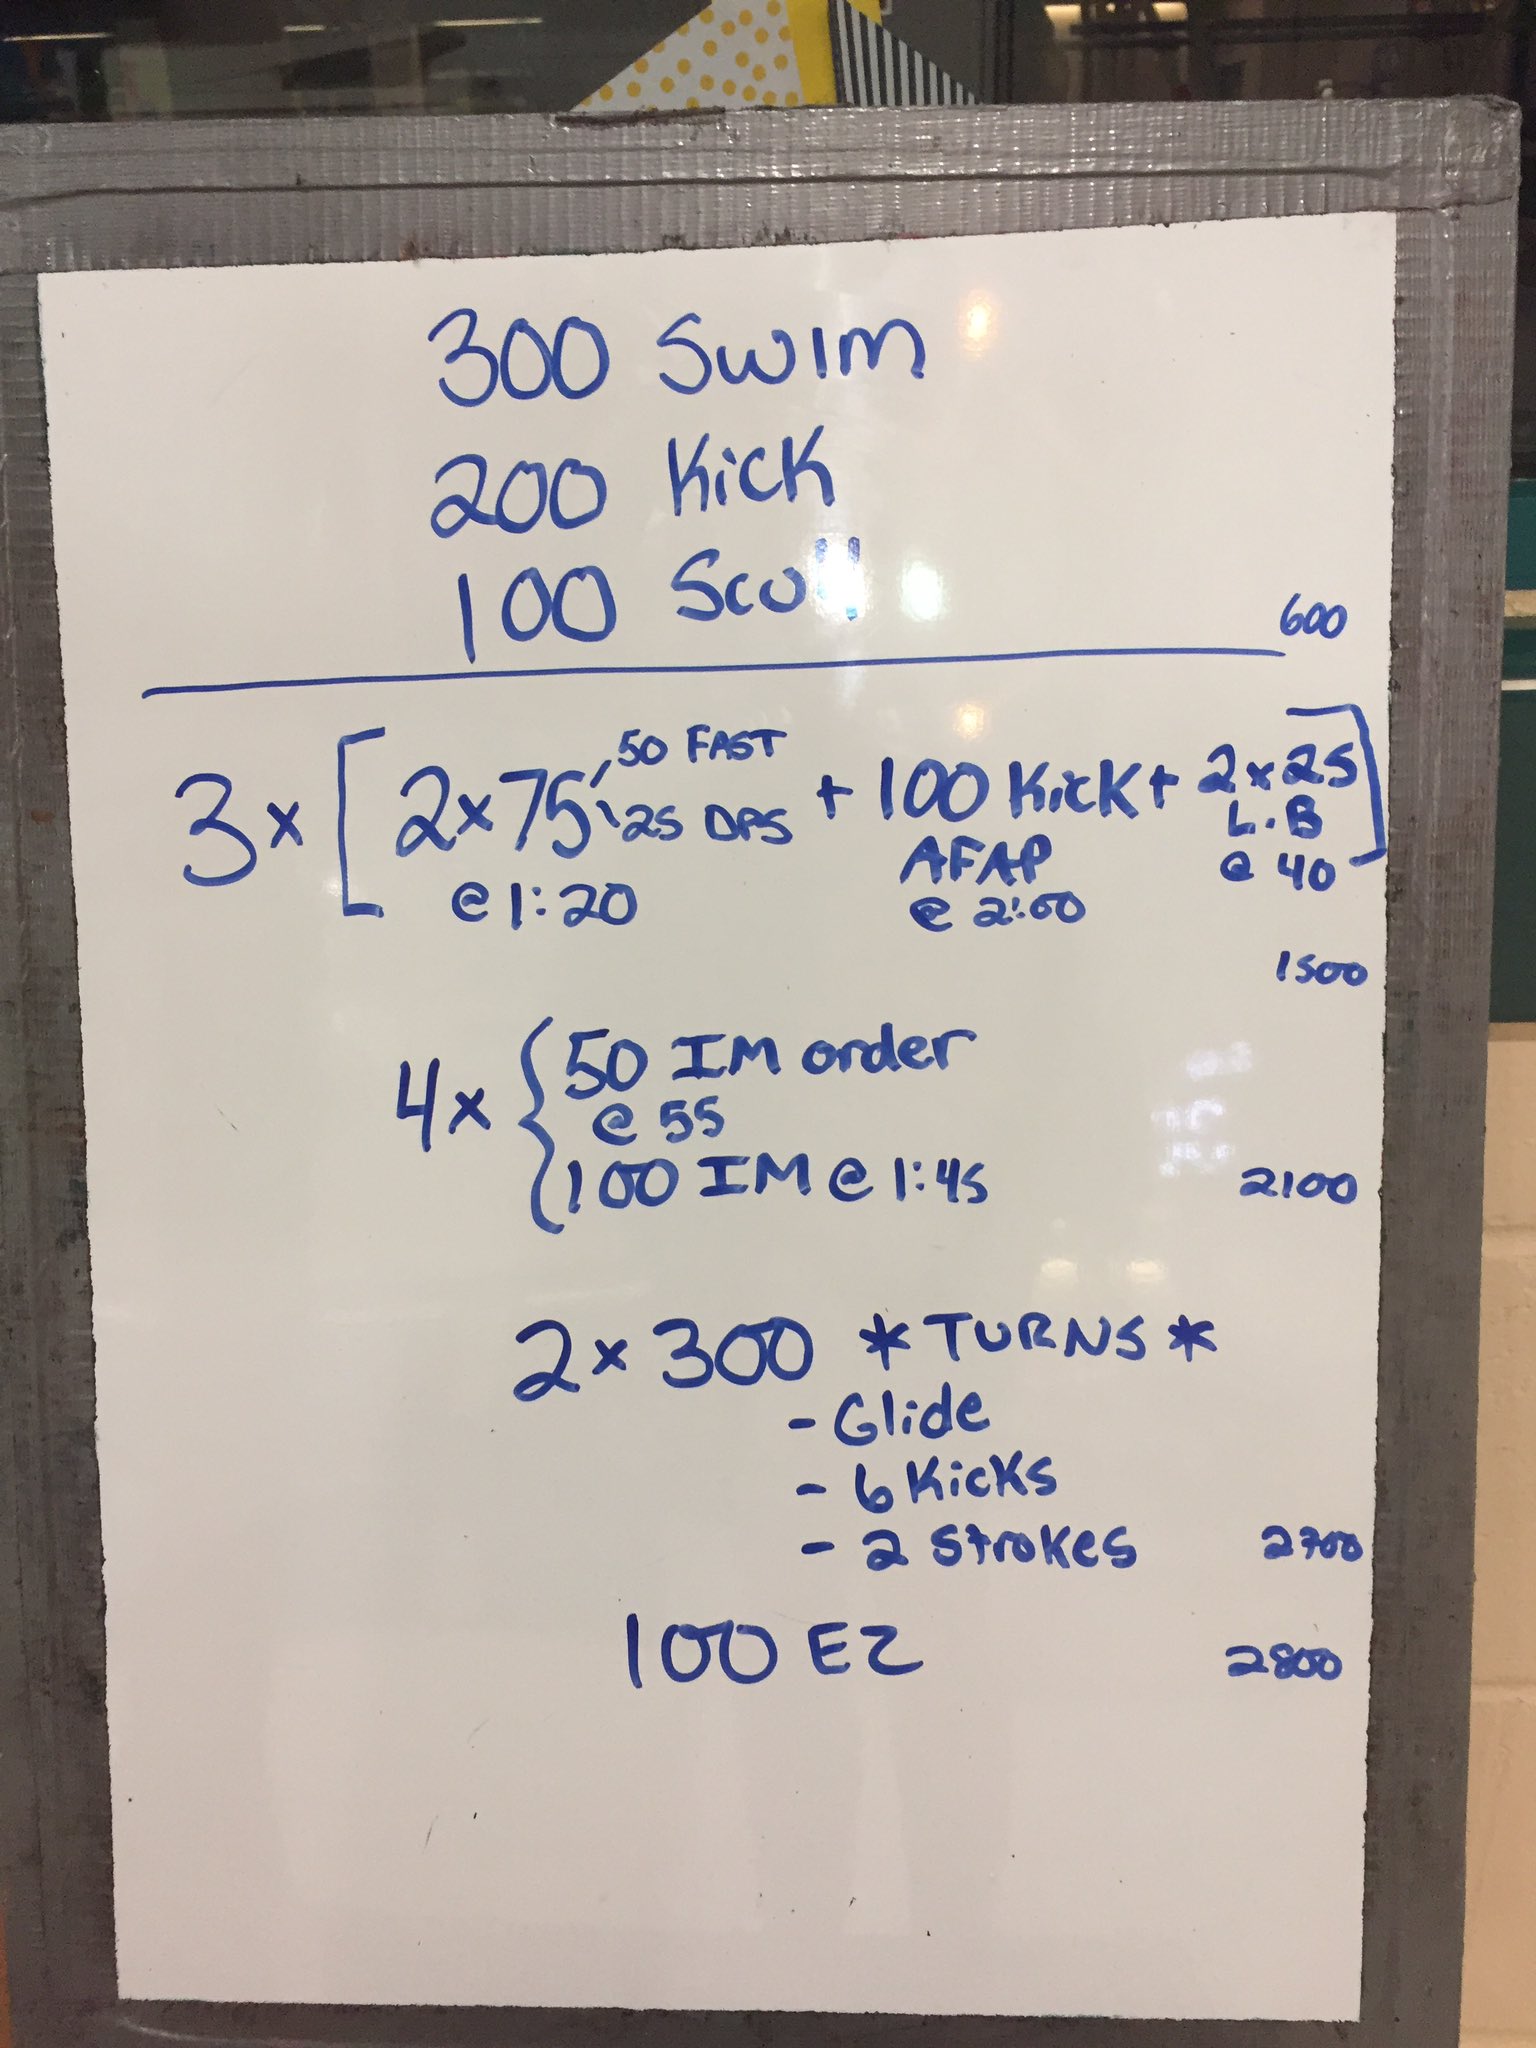 300 Swim
200 Kick
100 Scull
600
3 x [ 2 x 75 50 FAST 25 DPS @ 1:20 + 100 Kick AFAP @ 2:00 + 2 x 25 L.B @ 40 ]
1500
4 x { 50 IM order
@ 55
100 IM @ 1:45 2100
2 x 300 * TURNS *
- Glide
- 6 Kicks
- 2 Strokes 2700
100 EZ 2800